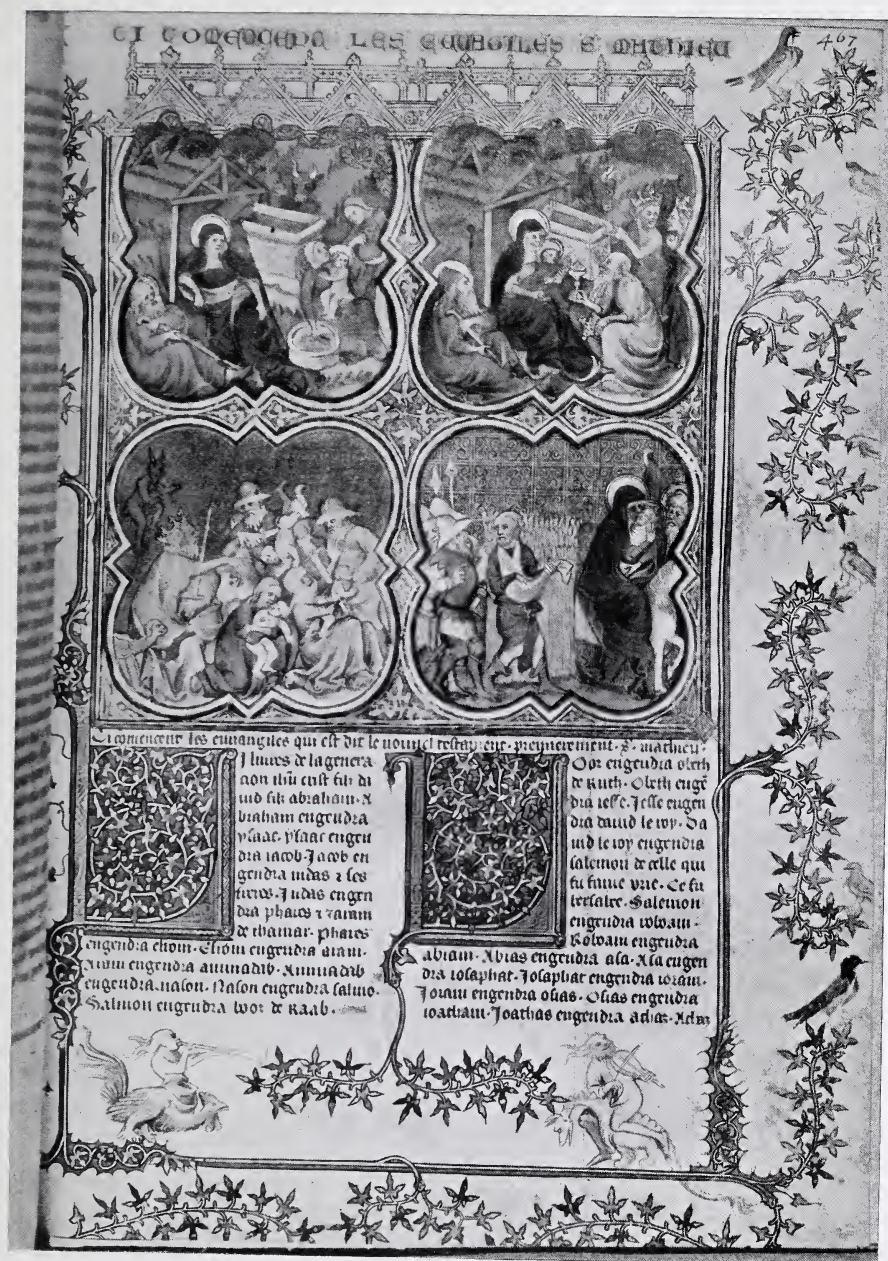 CI COMENCENT LES EUVAGILES S MATHIEU
467
Ci comencent les euvangiles qui est dit le nouvel testament. premierement. S. mathieu.
I livres de la genera
cion ihu crist filz da
vid filz abraham. A
braham engendra
ysaac. ysaac engen
dra iacob. Jacob en
gendra iudas et ses
freres. Judas engen
dra phares et zaram
de thamar. Phares
engendra esrom. Esrom engendra aram.
Aram engendra aminadab. Aminadab
engendra nason. Nason engendra salmo.
Salmon engendra booz de Raab.
Ooz engendra obeth
de Ruth. Obeth enge
dra iesse. Jesse engen
dra david le roy. Da
vid le roy engendra
salemon de celle qui
fu fame urie. Ce fu
bersabee. Salemon
engendra roboam.
Roboam engendra
abiam. Abias engendra asa. Asa engen
dra iosaphat. Josaphat engendra ioram.
Joram engendra osias. Osias engendra
ioatham. Joathas engendra achas. Achas